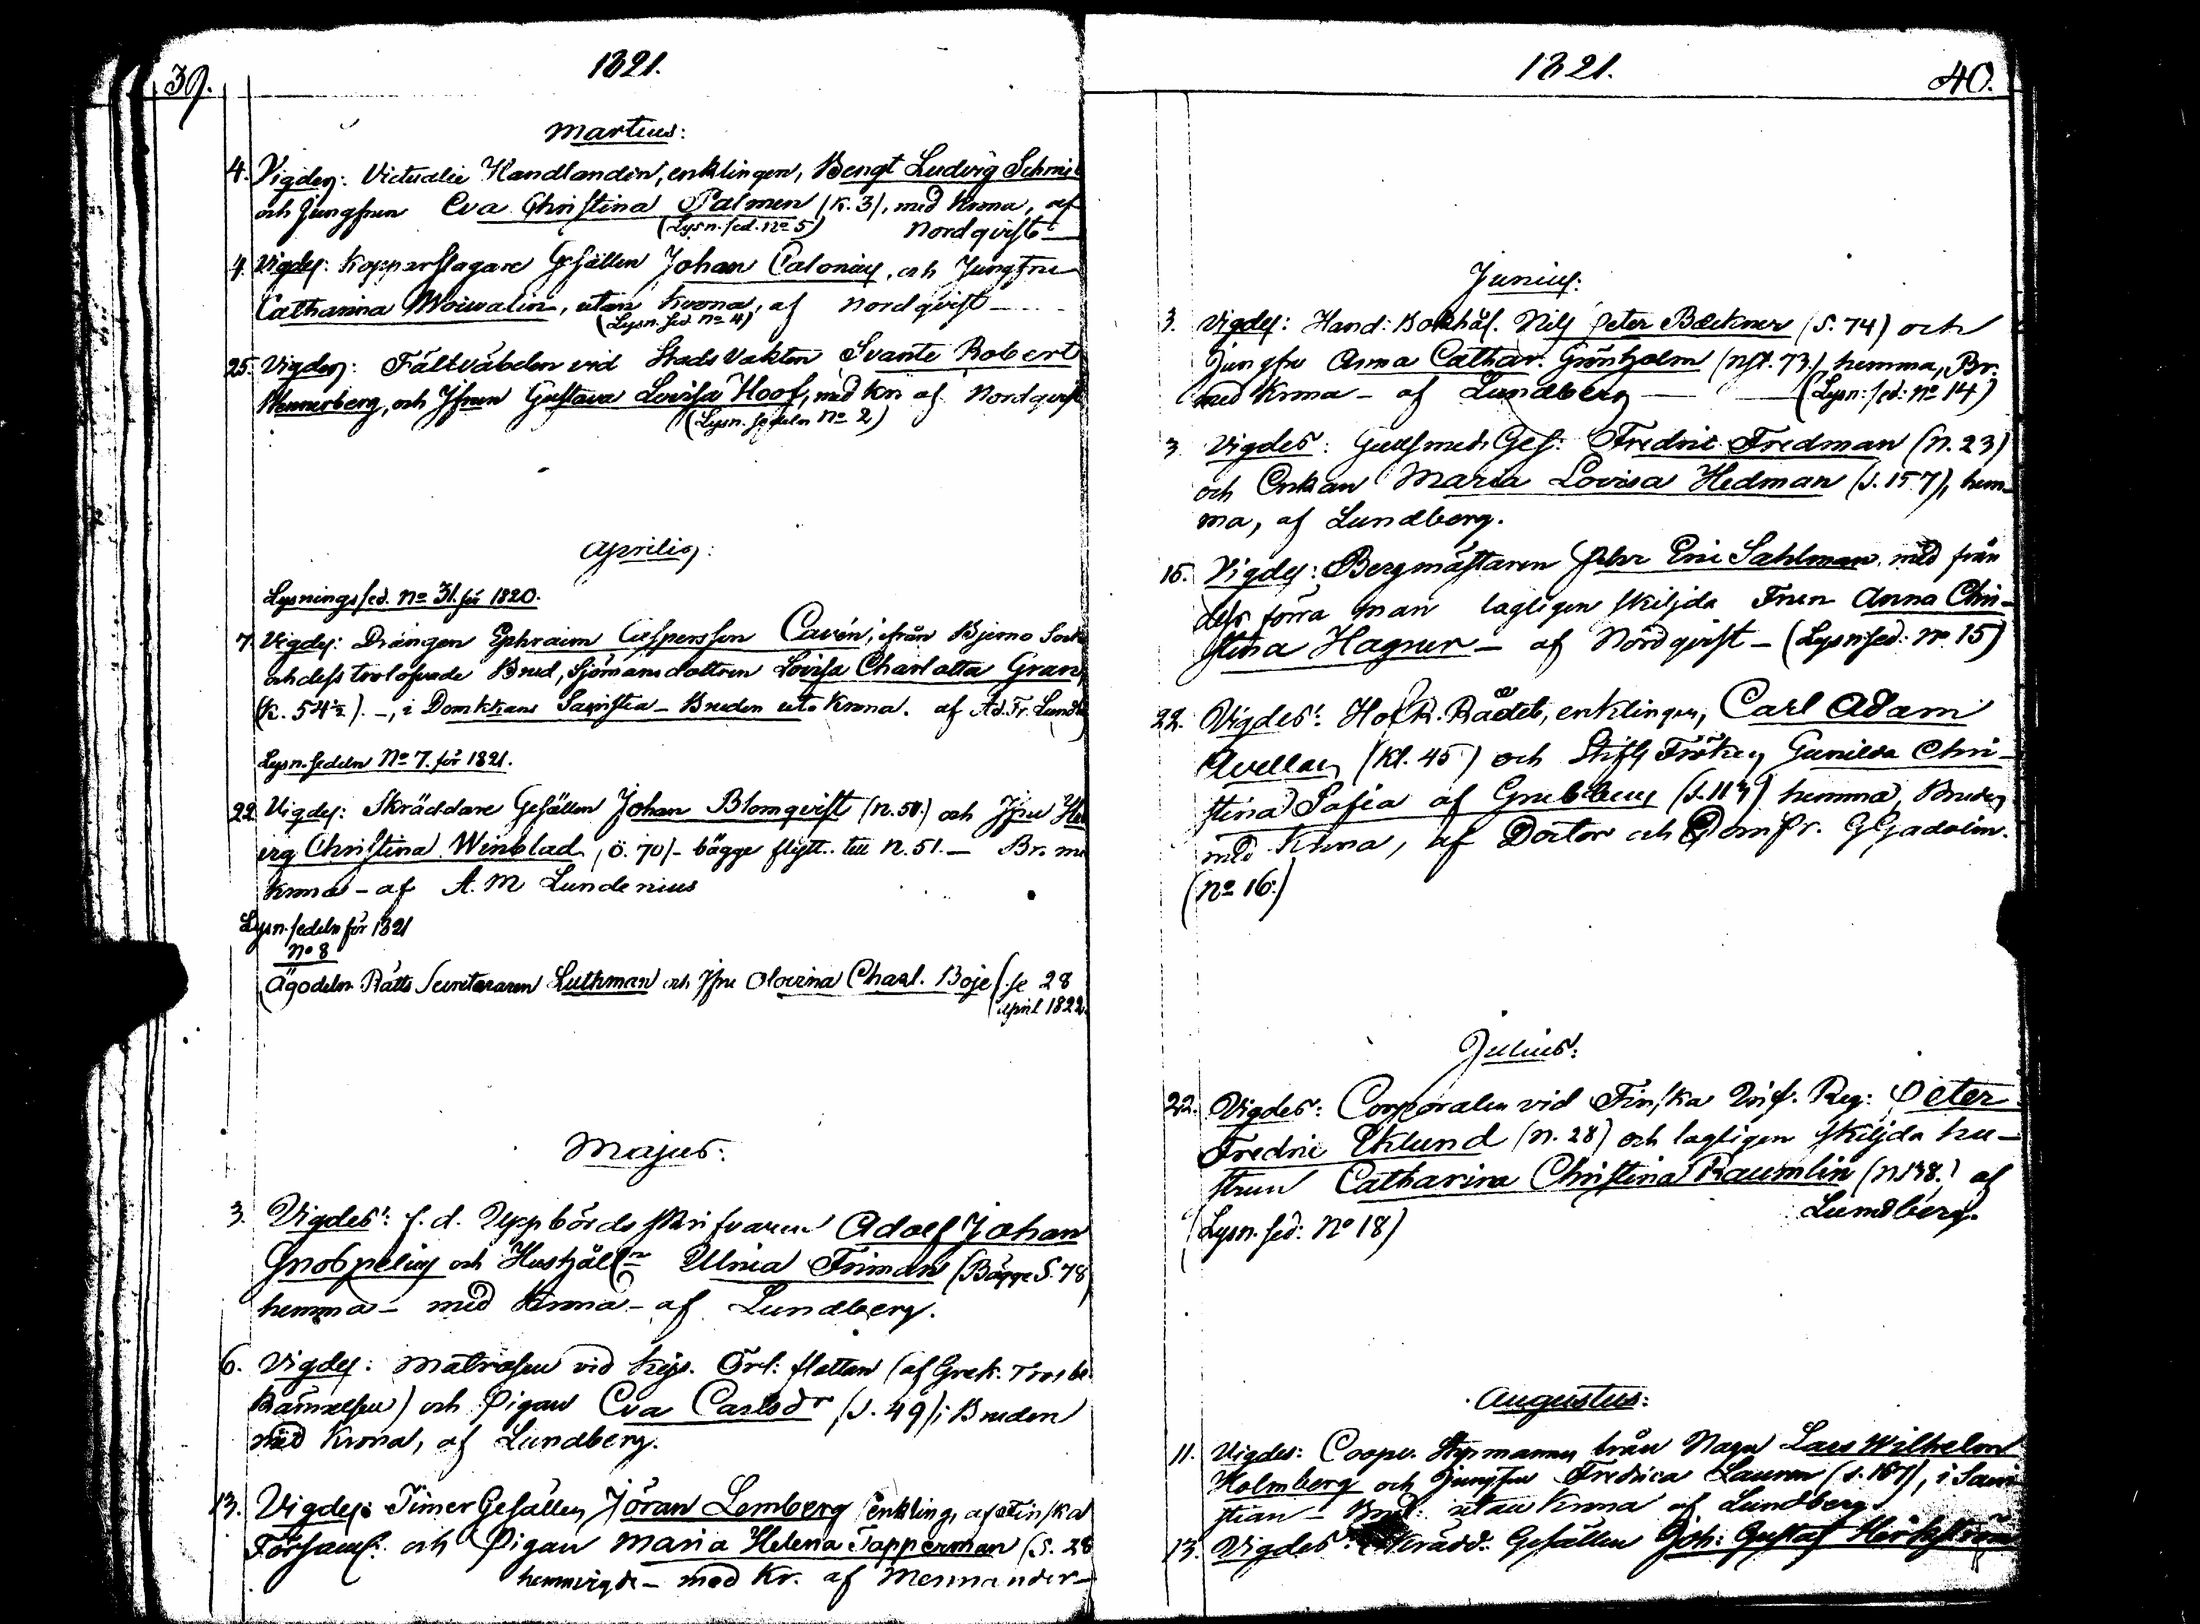 39.
1821.
Martius:
4. Vigdes: Victualie Handlanden, enklingen, Bengt Ludvig Schmi
och Jungfrun Eva Christina Palmen (K. 3), med Krona, af
(Lysn. sed. No 5) Nordqvist
4. Vigdes: Kopparslagare Gesällen Johan Calonius, och Jungfru
Catharina Woivalin, utan krona, af Nordqvist
(Lysn. sed. No 4)
25. Vigdes: Fältväbelen vid Stads Vakten Svante Robert
Wennerberg, och Jfrun Gustava Lovisa Hoof, med kr. af Nordqvist
(Lysn. sedeln No 2)
Aprilis:
Lysningssed. No 31. för 1820.
7. Vigdes: Drängen Ephraim Caspersson Cavén, ifrån Bjerno Sock
och dess trolofvade Brud, Sjömans dottren Lovisa Charlotta Gran,
(K. 54 ½). –, i Domkkans Sacristia – Bruden uta Krona. af Ad. Fr. Lund
Lysn. sedeln No 7. för 1821.
22. Vigdes: Skräddare Gesällen Johan Blomqvist (N. 50.) och Jfru He
vig Christina Winblad, Ö. 70/- bägge flytt. till N. 51. – Br. m
krona – af A. M Lundenius
Lysn. sedeln för 1821
No 8
Ägodeln. Rätts Secreteraren Luthman och Jfru Char. Boje (se 28
April 1822.
Majus:
3. Vigdes: f. d. Uppbörds skrifvaren Adolf Johan
Gnospelius och Hushåll Ulrica Friman (Bägge S. 78
hemma – med krona – af Lundberg.
6. Vigdes: Matrosen vid Kejs. Örl: flottan (af Grek. Trosbe
kännelsen) och Pigan Eva Carlsdr (S. 49); Bruden
med Krona, af Lundberg.
13. Vigdes: Timer Gesällen Jöran Lemberg enkling, af Finska
Församl: och Pigan Maria Helena Tapperman (S. 28
hemmvigde – med Kr. af Mennander –
1821. 40.
Junius:
3. Vigdes: Hand: Bokhål. Nils Peter Bæckner (S. 74) och
Jungfru Anna Cathar. Grönholm (Nst. 73.) hemma, Br.
med Krona – af Lundberg (Lysn: sed: No 14)
3. Vigdes: Gullsmeds Ges: Fredric Fredman (N. 23)
och Enkan Maria Lovisa Hedman (S. 157), hem-
ma, af Lundberg.
15. Vigdes: Bergmästaren Petr Eric Sahlman, med från
dess förra man lagligen skiljda Frun Anna Chri-
stina Hagner – af Nordqvist – (Lysn: sed: No 15)
22. Vigdes: Hof R. Rådet, enklingen, Carl Adam
Avellan, (Kl. 45) och Stifts Fröken Gunilda Chri-
stina Sofia af Grubbens hemma, Bruden
med Krona, af Doctor och Dompr. G Gadolin.
(No 16.)
Julius:
22. Vigdes: Corporalen vid Finska Inf. Reg: Peter
Fredric Eklund (N. 28) och lagligen skiljda hu-
strun Catharina Christina Raumlin (N. 138.) af
(Lysn. sed: No 18) Lundberg.
Augustus:
11. Vigdes: Styrmannen från Lars Wilhelm
Holmberg och Jungfru Fredrica Lauren (S. 167), i Sacri
stian – Brud: utan krona af Lundberg.
13. Vigdes: Skrädd. Gesällen Joh: Gustaf